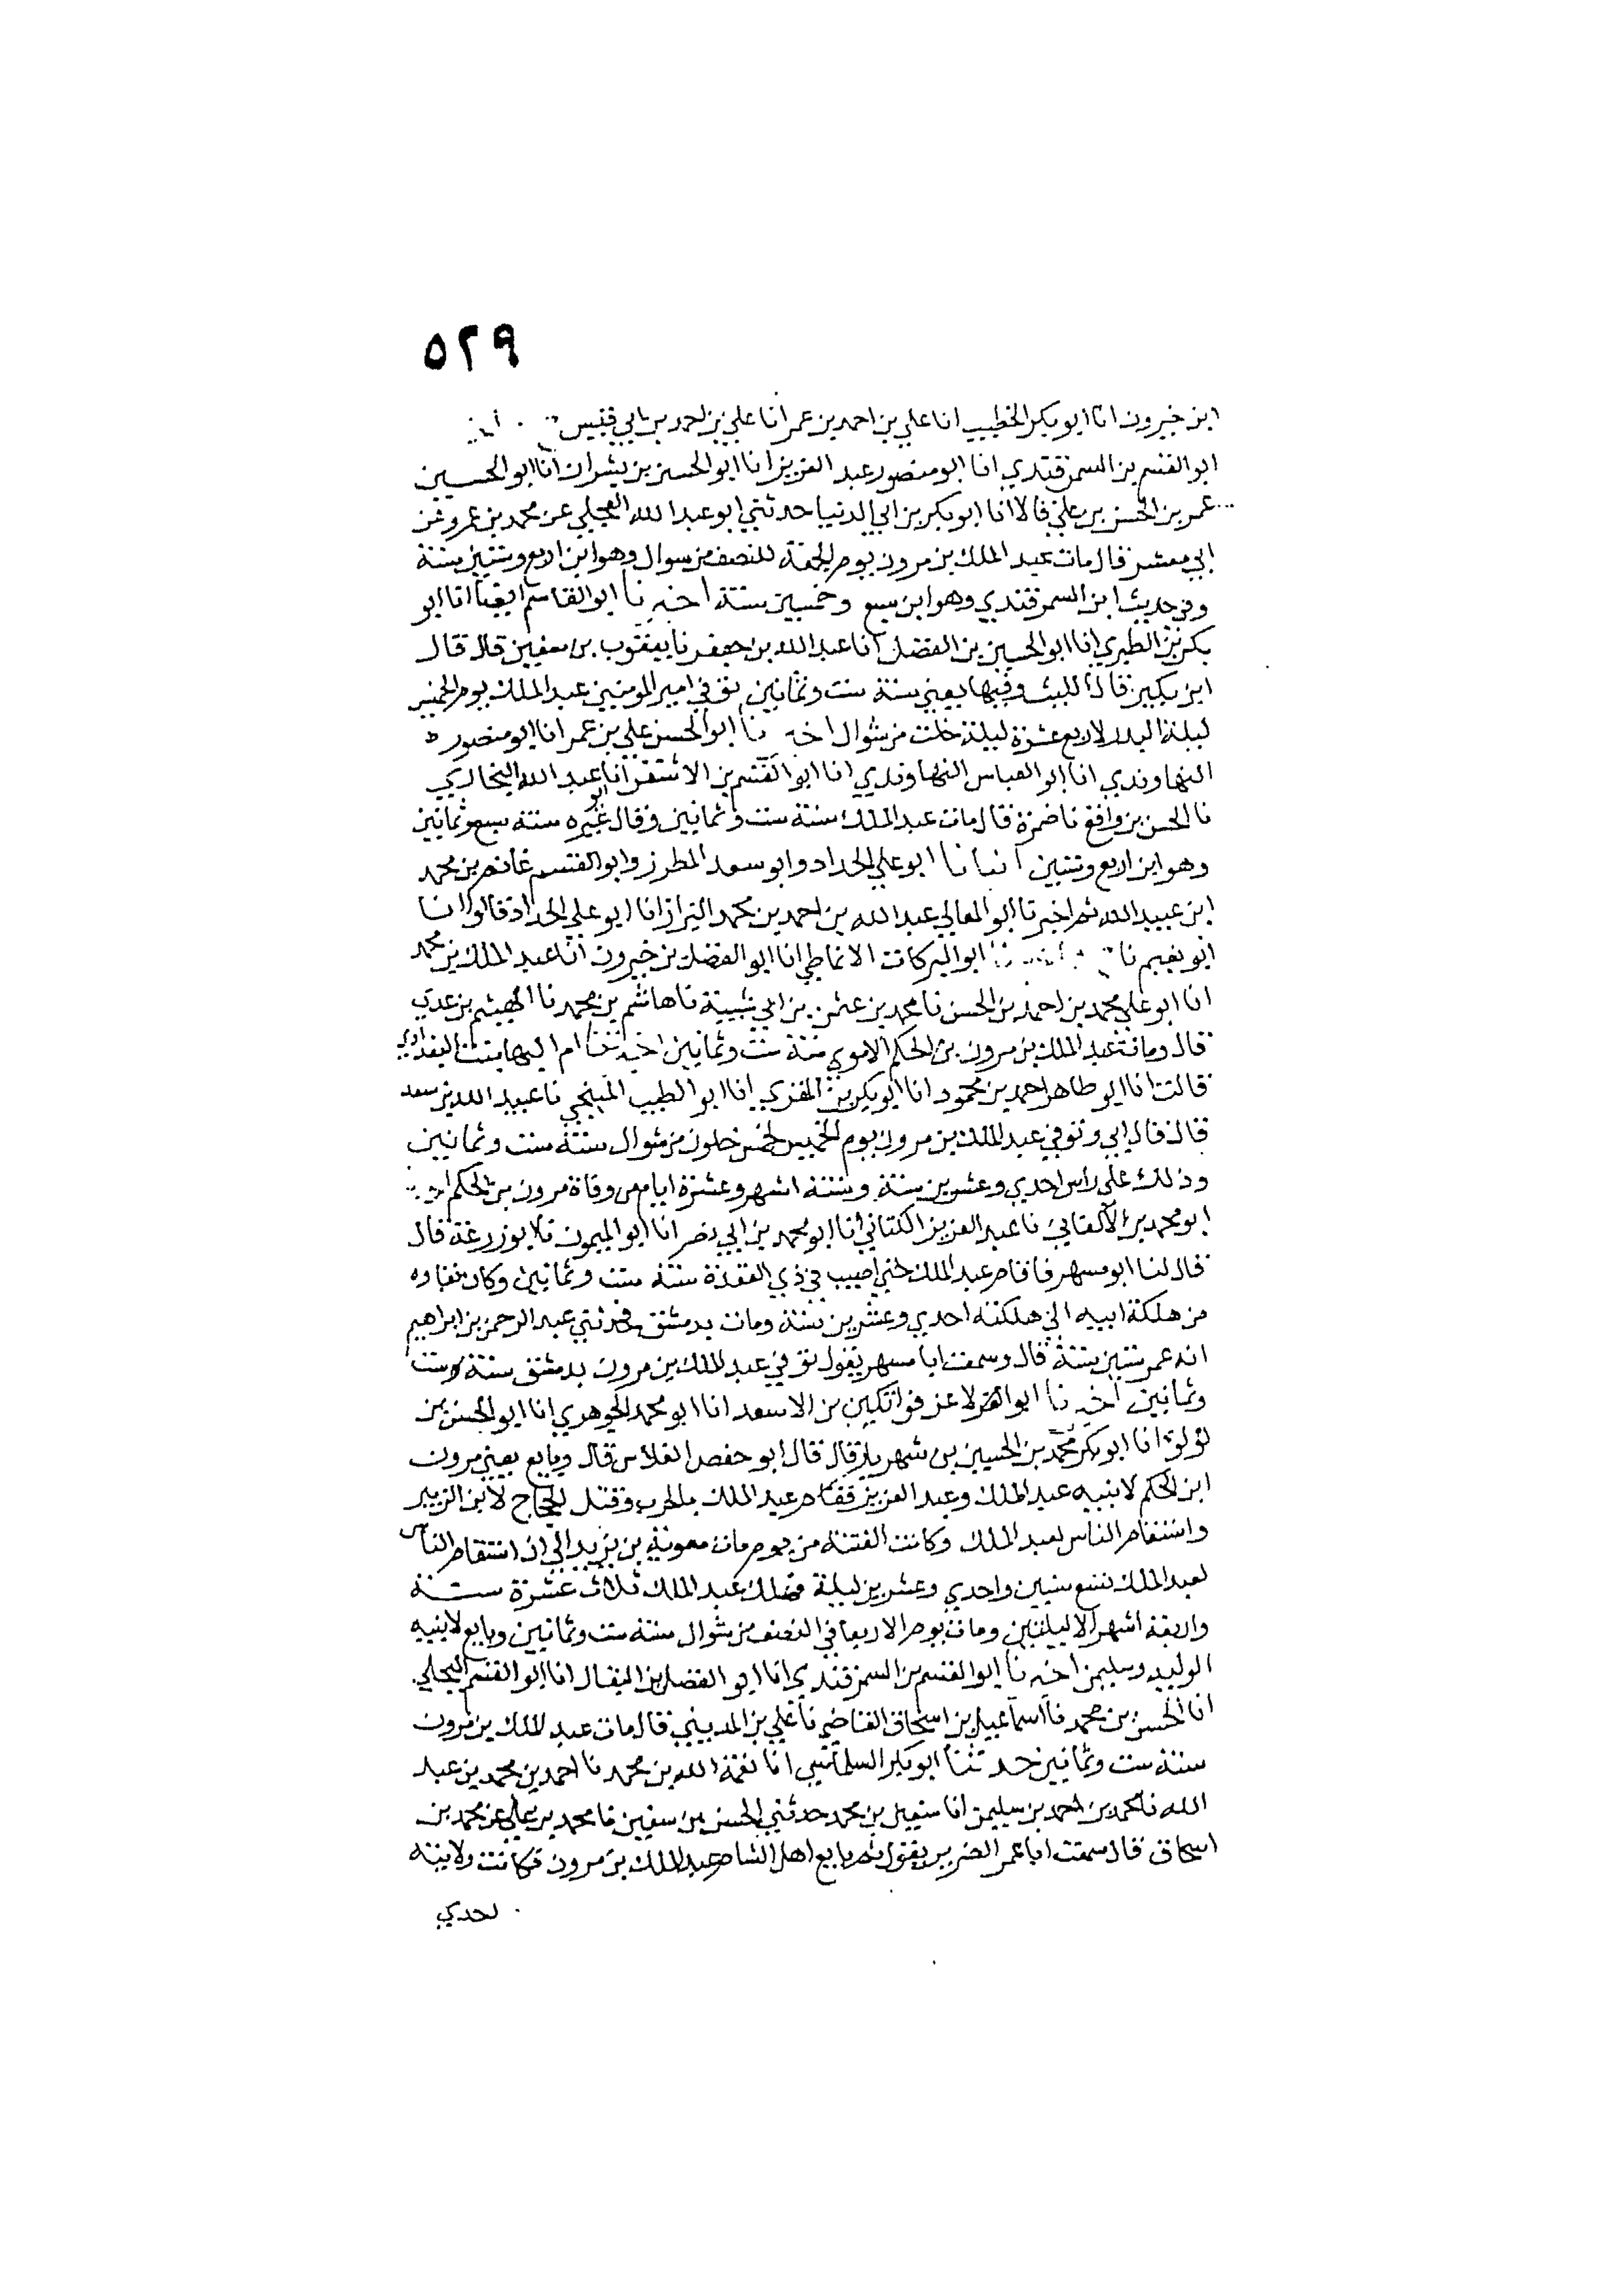 ٥٢٩
ابن خيرون انا ابو بكر الخطيب انا علي بن احمد بن عمر انا علي بن احمد بن ابي قيس
ابو القسم بن السمرقندي انا ابو منصور عبد العزيز انا ابو الحسن بن بشران انا ابو الحسين
عمر بن الحسن بن علي قالا انا ابو بكر بن ابي الدنيا حدثني ابو عبد الله العجلي عن محمد بن عمرو عن
ابي معشر قال مات عبد الملك بن مرون يوم الجمعة للنصف من سوال وهو ابن اربع وستين سنة
وفي حديث ابن السمرقندي وهو ابن سبع وخمسين سنة اخبرنا ابو القاسم ايضا انا ابو
بكر بن الطبري انا ابو الحسين بن الفضل انا عبد الله بن جعفر نا يعقوب بن سفين قال قال
ابن بكير قال الليث وفيها يعني سنة ست وثمانين توفي امير المومنين عبد الملك يوم الخميس
ليلة البدر لاربع عشرة ليلة خلت من شوال اخبرنا ابو الحسن علي بن عمر انا ابو منصور
النهاوندي انا ابو العباس النهاوندي انا ابو القسم بن الاشقر انا عبد الله البخاري
نا الحسن بن واقع نا ضمرة قال مات عبد الملك سنة ست وثمانين وقال غيره سنة سبع وثمانين
وهو ابن اربع وستين انبانا ابو علي الحداد وابو سعد المطرز وابو القسم غانم بن محمد
ابن عبيد الله ثم اخبرنا ابو المعالي عبد الله بن احمد بن محمد البزاز انا ابو علي الحداد قالوا انا
ابو نعيم نا ابو البركات الانماطي انا ابو الفضل بن خيرون انا عبد الملك بن محمد
انا ابو علي محمد بن احمد بن الحسن نا محمد بن عثمن بن ابي شيبة نا هاشم بن محمد نا الهيثم بن عدي
قال ومات عبد الملك بن مرون بن الحكم الاموي سنة ست وثمانين اخبرتنا ام البها بنت البغدادي
قالت انا ابو طاهر احمد بن محمود انا ابو بكر بن المقري انا ابو الطيب المنبجي نا عبيد الله بن سعد
قال قال ابي وتوفي عبد الملك بن مرون يوم الخميس لخمس خلون من شوال سنة ست وثمانين
وذلك على راس احدي وعشرين سنة وستة اشهر وعشرة ايام من وفاة مرون بن الحكم
ابو محمد بن الاكفاني نا عبد العزيز الكتاني انا ابو محمد بن ابي نصر انا ابو الميمون نا ابو زرعة قال
قال لنا ابو مسهر فاقام عبد الملك حتي اصيب في ذي القعدة سنة ست وثمانين وكان بقاوه
من هلكة ابيه الي هلكته احدي وعشرين سنة ومات بدمشق فحدثني عبد الرحمن بن ابراهيم
انه عمر ستين سنة قال وسمعت ابا مسهر يقول توفي عبد الملك بن مرون بدمشق سنة ست
وثمانين اخبرنا ابو العز لاعز قراتكين بن الاسعد انا ابو محمد الجوهري انا ابو الحسن بن
لؤلؤ انا ابو بكر محمد بن الحسين بن شهريار قال قال ابو حفص الفلاس قال وبايع يعني مرون
ابن الحكم لابنيه عبد الملك وعبد العزيز فقام عبد الملك بالحرب وقتل الحجاج لابن الزبير
واستقام الناس لعبد الملك وكانت الفتنة من يوم مات معوية بن يزيد الي ان استقام الناس
لعبد الملك تسع سنين واحدي وعشرين ليلة فملك عبد الملك ثلاث عشرة سنة
واربعة اشهر الا ليلتين ومات يوم الاربعا في النصف من شوال سنة ست وثمانين وبايع لابنيه
الوليد وسليمن اخبرنا ابو القسم بن السمرقندي انا ابو الفضل بن البقال انا ابو القسم البجلي
انا الحسن بن محمد نا اسماعيل بن اسحاق القاضي نا علي بن المديني قال مات عبد الملك بن مرون
سنة ست وثمانين حدثنا ابو بكر السلماسي انا نعمة الله بن محمد نا احمد بن محمد بن عبد
الله نا محمد بن احمد بن سليمن انا سفين بن محمد حدثني الحسن بن سفين نا محمد بن علي عن محمد بن
اسحاق قال سمعت ابا عمر الضرير يقول ثم بايع اهل الشام عبد الملك بن مرون فكانت ولايته
احدي